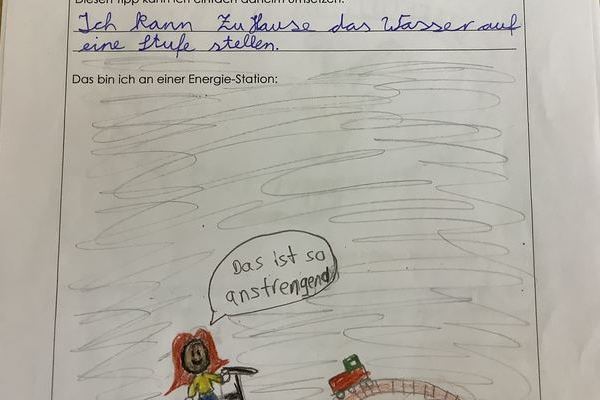 Diesen Tipp kann ich einfach daheim umsetzen:
Ich kann Zu Hause das Wasser auf
eine Stufe stellen.
Das bin ich an einer Energie-Station:
Das ist so
anstrengend